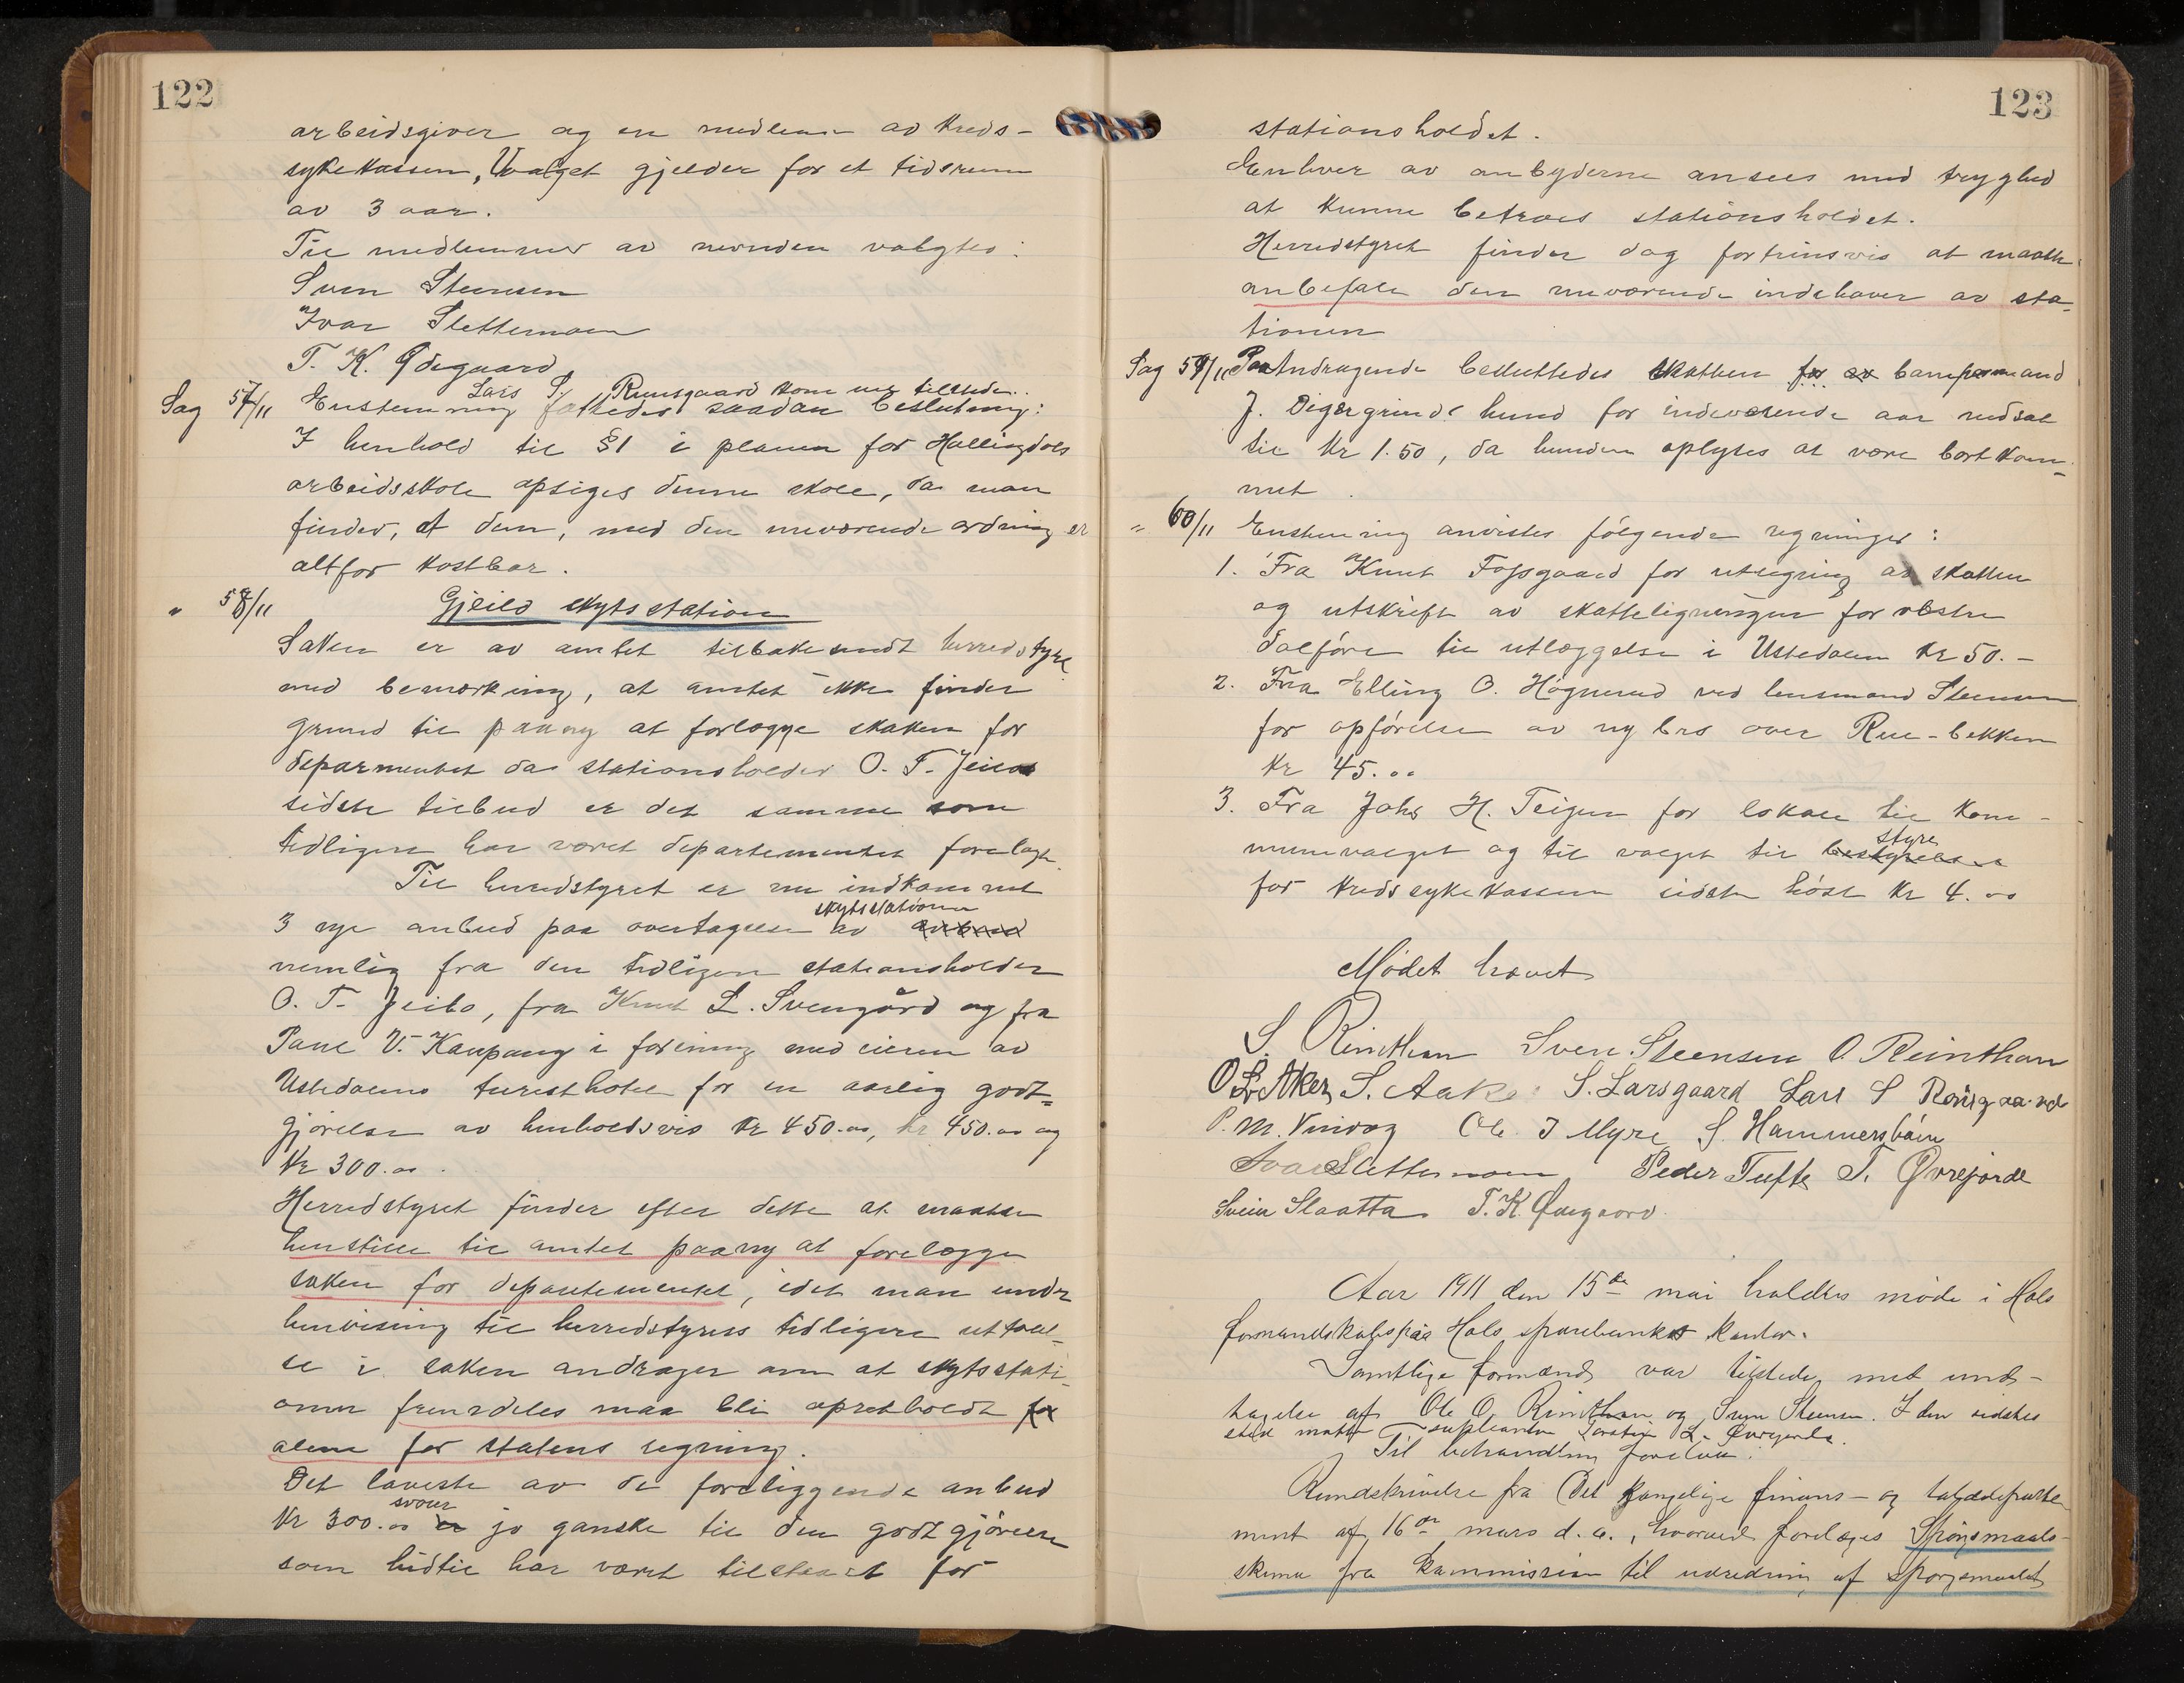 122
arbeidsgiver og en medlem av kreds-
sykekassen, Valget gjelder for et tidsrum
av 3 aar.
Til medlemmer av nevnden valgtes:
Sven Steensen
Ivar Slettemoen
T. K. Ødegaard
Lars S. Rønsgaard kom nu tilstede.
Sag 57/11 Enstemmig fattedes saadan beslutning:
I henhold til §1 i planen for Hallingdals
arbeidsskole opsiges denne skole, da man
finder, at den, med den nuværende ordning er
altfor kostbar.
" 58/11 Gjeilo skytsstation
Saken er av amtet tilbakesendt herredstyre
med bemerkning, at amtet ikke finder
grund til paany at forlægge skaken for
deparmentet da stationsholder O. T. Jeilos
sidste tilbud er det samme som
tidligere har været departementet forelagt
Til herredstyret er nu indkommet
skytsstationen
3 nye anbud paa overtagelse av anbud
nemlig fra den tidligere stationsholder
O. T. Jeilo, fra Knut L. Svengård og fra
Paul V. Kaupang i forening med eieren av
Ustedalens turisthotel for en aarlig godt=
gjørelse av henholdsvis Kr 450.00, kr 450.00 og
Kr 300.00.
Herredstyret finder efter dette at maatte
henstille til amtet paany at forelægge
saken for departementet, idet man under
henvisning til herredstyress tidligere uttalel-
se i saken andrager om at skytsstati-
onen fremdeles maa bli opretholdt for
alene for statens regning.
Det laveste av de foreliggende anbud
svarer
Kr 300.00 er jo ganske til den godtgjørelse
som hidtil har været tilstaaet for
123
stationsholdet.
Enhver av anbyderne ansees med tryghed
at kunne betroes stationsholdet.
Herredstyret finder dog fortrinsvis at maatte
anbefale den nuværende indehaver av sta-
tionen
Sag 59/11 Paa Andragende besluttedes skatten for av
J. Digergrinds hund for indeværende aar nedsat
til Kr 1.50, da hunden oplyses at være bortkom-
met.
" 60/11 Enstemmig anvistes følgende regninger:
1. Fra Knut Fossgaard for utregning av skatten
og utskrift av skatteligningen for vestre
dalføre til utlæggelse i Ustedalen Kr 50.-
2. Fra Elling O. Høgnerud ved lensmand Steensen
for opførelse av ny bro over Rue-bekken
Kr 45.00
3. Fra Johs H. Teigen for lokale til kom-
styre
munevalget og til valget til bestyrelse
for kredssykekassen sidste høst Kr 4.00
Mødet hævet
S. Reinthon Sven Steensen O. Reinthon
O L Aker S. Aaker S. Larsgaard Lars S Rønsgaard
P. M. Vindeg Ole J Myre S. Hammersbøen
Ivar Slettemoen Peder Tufte T. Øvrejorde
Svein Slaatta T. K. Ødegaard
Aar 1911 den 15de mai holdtes møde i Hols
formandskab paa Hols sparebanks kontor.
Samtlige formænd var tilstede med und-
tagelse af Ole O. Reinthon og Sven Steensen. I den sidstes
sted møtte supleanten Torstein L. Øvrejorde.
Til behandling forelaa:
Rundskrivelse fra Det kongelige finans- og tolddeparte
ment af 16de mars d.a., hvorved forelægges Spørgsmaals-
skema fra kommission til utredning af spørgsmaalet